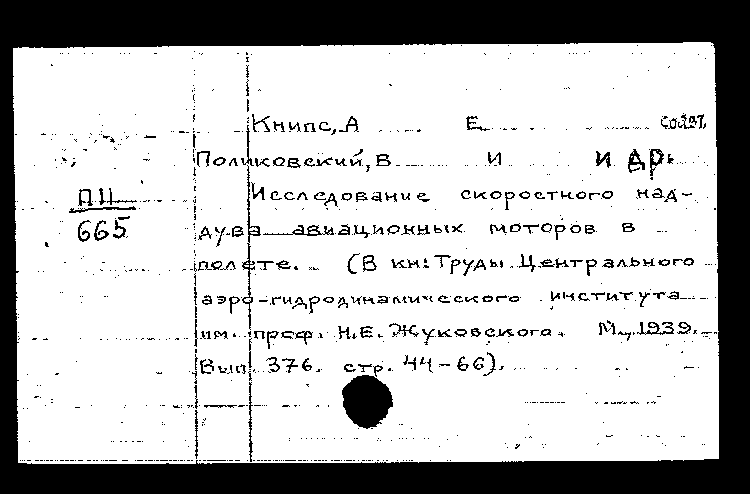 Книпс, А Е. соавт.
Поликовский, В И и др.
Исследование скоростного над-
дува авиационных моторов в
полете. (В кн: Труды Центрального
аэро-гидродинамического института
им. проф. Н.Е. Жуковского. М., 1939.
Вып. 376. стр. 44-66).
П11
665